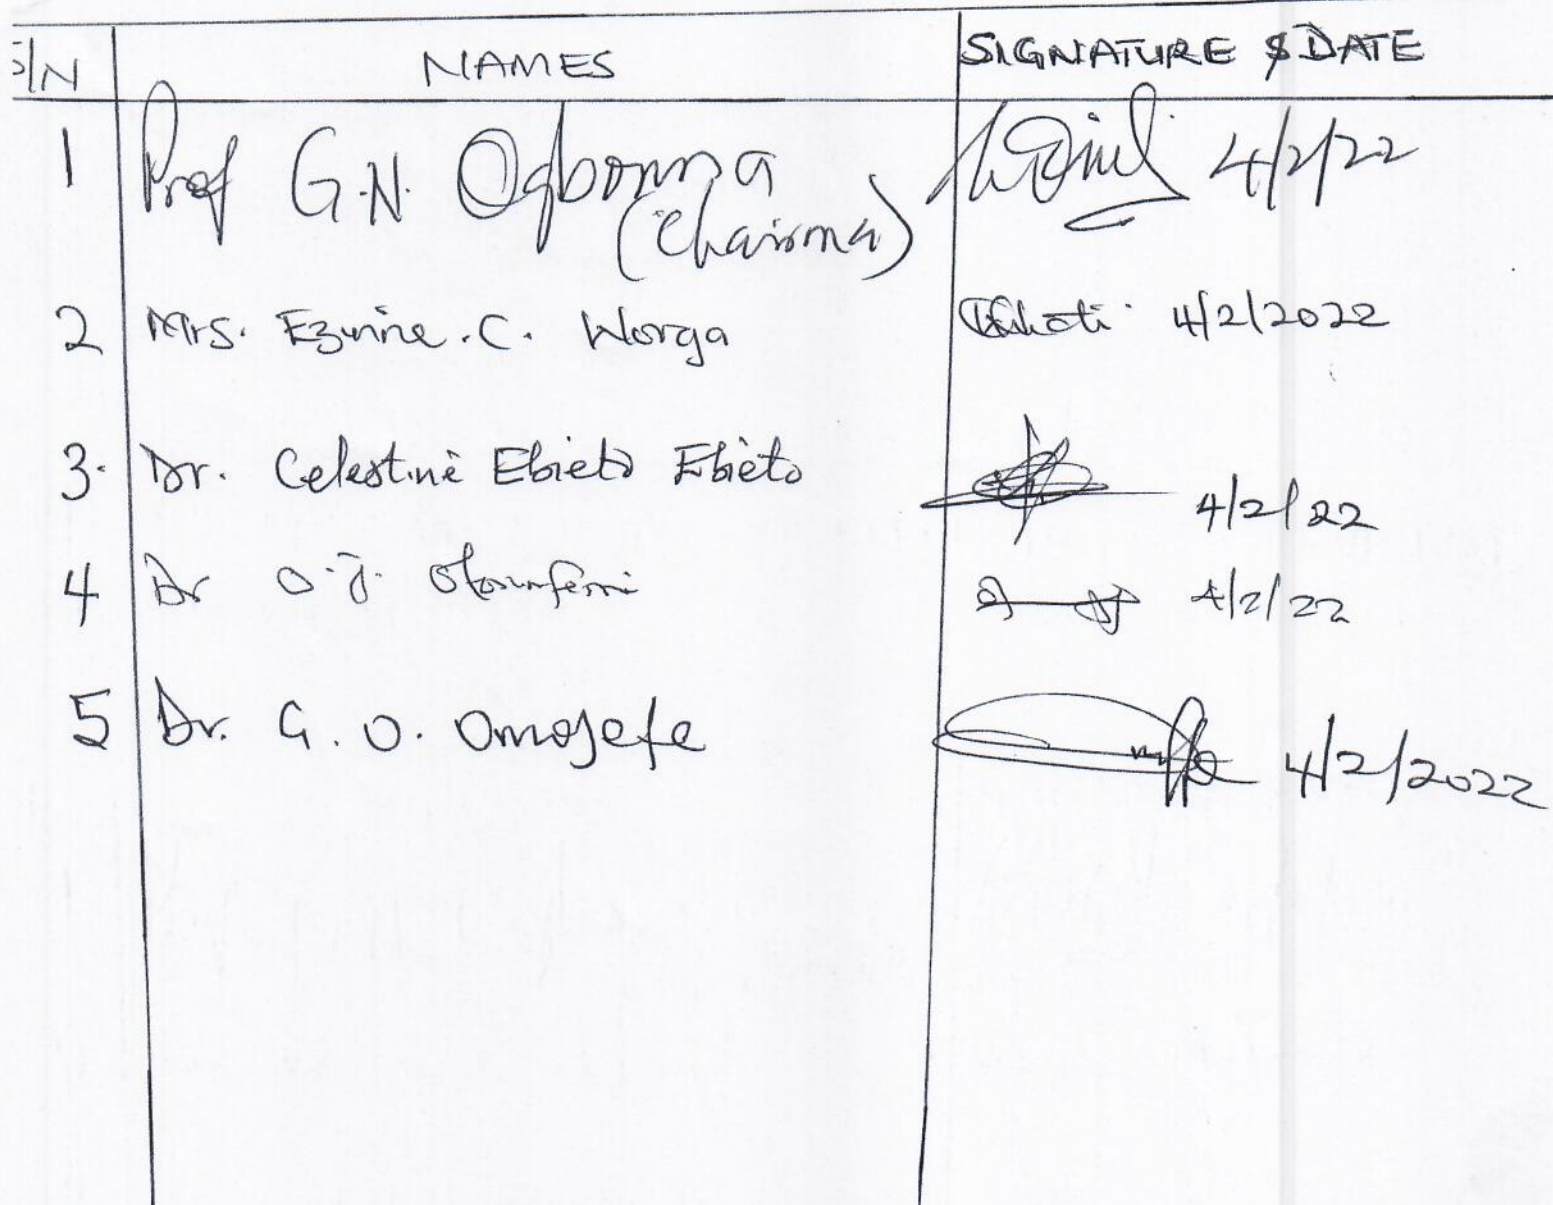 S/N NAMES SIGNATURE & DATE
1 Prof G.N. Ogbonna 4/2/22
(Chairma)
2 Mrs. Ezinne. C. Worga 4/2/2022
3. Dr. Celestine Ebieto Ebieto 4/2/22
4 Dr O.J. 4/2/22
5 Dr. G. O. Omosefe 4/2/2022